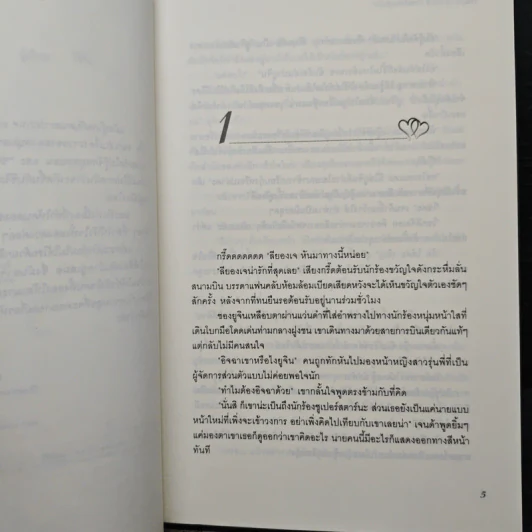 1
กรี๊ดดดดดดด "ลียองเจ หันมาทางนี้หน่อย"
"ลียองเจน่ารักที่สุดเลย" เสียงกรี๊ดต้อนรับนักร้องขวัญใจดังกระหึ่มลั่น
สนามบิน บรรดาแฟนคลับห้อมล้อมเบียดเสียดหวังจะได้เห็นขวัญใจตัวเองชัดๆ
สักครั้ง หลังจากที่ทนยืนรอต้อนรับอยู่นานร่วมชั่วโมง
ซองยูจินเหลือบตาผ่านแว่นดำที่ใส่อำพรางไปทางนักร้องหนุ่มหน้าใสที่
เดินโบกมือโดดเด่นท่ามกลางฝูงชน เขาเดินทางมาด้วยสายการบินเดียวกันแท้ๆ
แต่กลับไม่มีคนสนใจ
"อิจฉาเขาหรือไงยูจิน" คนถูกทักหันไปมองหน้าหญิงสาวรุ่นพี่ที่เป็น
ผู้จัดการส่วนตัวแบบไม่ค่อยพอใจนัก
"ทำไมต้องอิจฉาด้วย" เขากลั้นใจพูดตรงข้ามกับที่คิด
"นั่นสิ ก็เขาน่ะเป็นถึงนักร้องซูเปอร์สตาร์นะ ส่วนเธอยังเป็นแค่นายแบบ
หน้าใหม่ที่เพิ่งจะเข้าวงการ อย่าเพิ่งคิดไปเทียบกับเขาเลยน่า" เจนด้าพูดยิ้มๆ
แค่มองตาเขาเธอก็ดูออกว่าเขาคิดอะไร นายคนนี้มีอะไรก็แสดงออกทางสีหน้า
ทันที
5